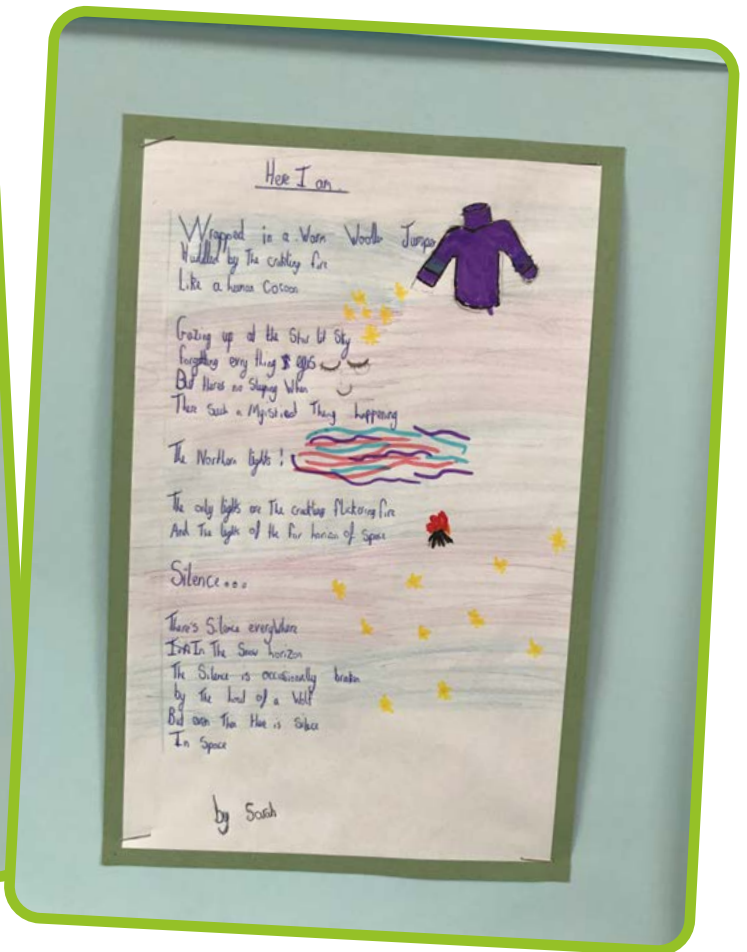 Here I am.
Wrapped in a Warm Woolly Jumper
Huddled by The crackling fire
Like a human Cocoon
Gazing up at the Star lit Sky
Forgetting every thing $ egos
But theres no Sleeping When
There Such a Mysitical Thing happening
The Northern lights!
The only lights are The crackling flickering fire
And The lights of the far horizon of Space
Silence...
There's Silence everyWhere
In The Snow horizon
The Silence is occasionally broken
by The howl of a Wolf
But even Then there is Silence
In Space
by Sarah